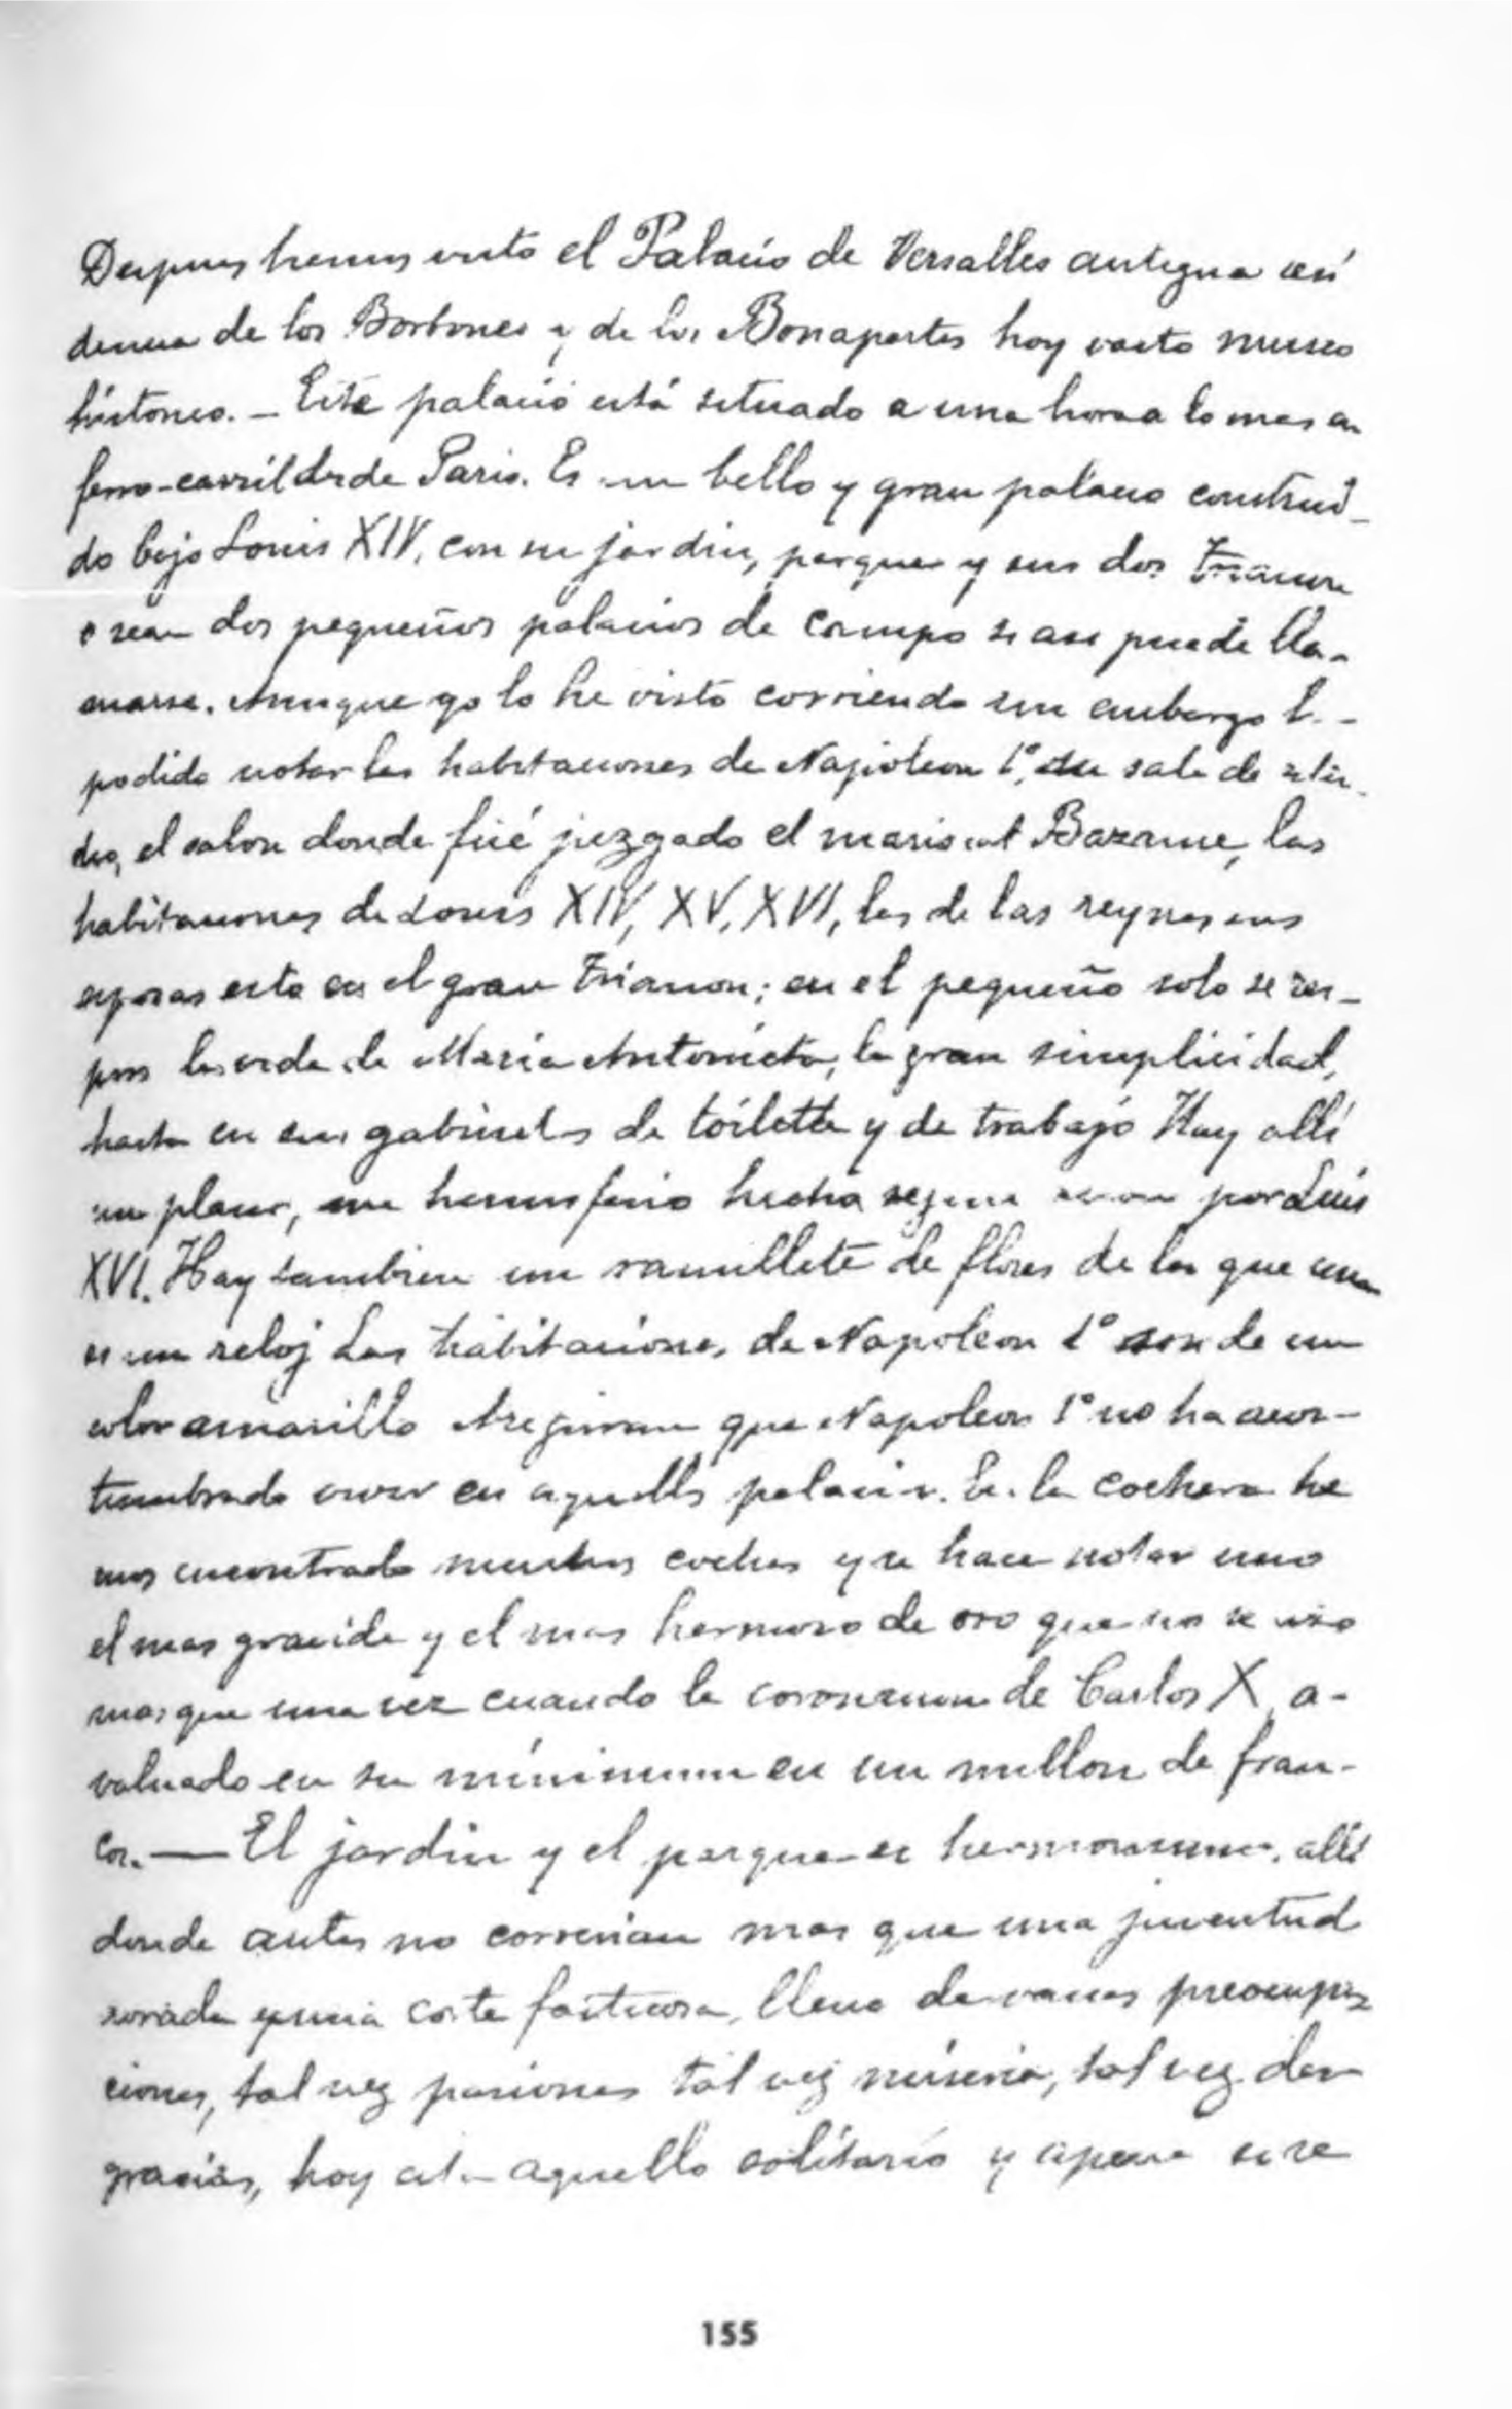 Despues hemos visto el Palacio de Versalles antigua resi
dencia de los Borbones y de los Bonapartes hoy vasto museo
histórico. — Este palacio está situado a una hora a lo mas en
ferro-carril desde Paris. Es un bello y gran palacio construí-
do bajo Louis XIV, con su jardin, parque y sus dos Trianon
o sean dos pequeños palacios de campo si asi puede lla-
marse. Aunque yo lo he visto corriendo sin embargo he
podido notar las habitaciones de Napoleon 1º, su sala de estu-
dio, el salon donde fué juzgado el mariscal Bazaine, las
habitaciones de Louis XIV, XV, XVI, las de las reynas sus
esposas esto en el gran Trianon; en el pequeño solo se res-
pira la vida de Maria Antonieta, la gran simplicidad,
hasta en sus gabinetes de toilette y de trabajo Hay allí
un plano, un hemisferio hecho segun por Luis
XVI. Hay tambien un ramillete de flores de las que una
es un reloj Las habitaciones de Napoleon 1º son de un
color amarillo Aseguran que Napoleon 1º no ha acos-
tumbrado vivir en aquellos palacios. En la cochera he
mos encontrado muchos coches y se hace notar uno
el mas grande y el mas hermoso de oro que no se usó
mas que una vez cuando la coronacion de Carlos X, a-
valuado en su minimum en un millon de fran-
cos. — El jardin y el parque es hermosisimo, allí
donde antes no correrian mas que una juventud
dorada y una corte fastuosa, llena de vanas preocupa
ciones, tal vez pasiones tal vez miseria, tal vez des
gracias, hoy está aquello solitario y apena si se
155